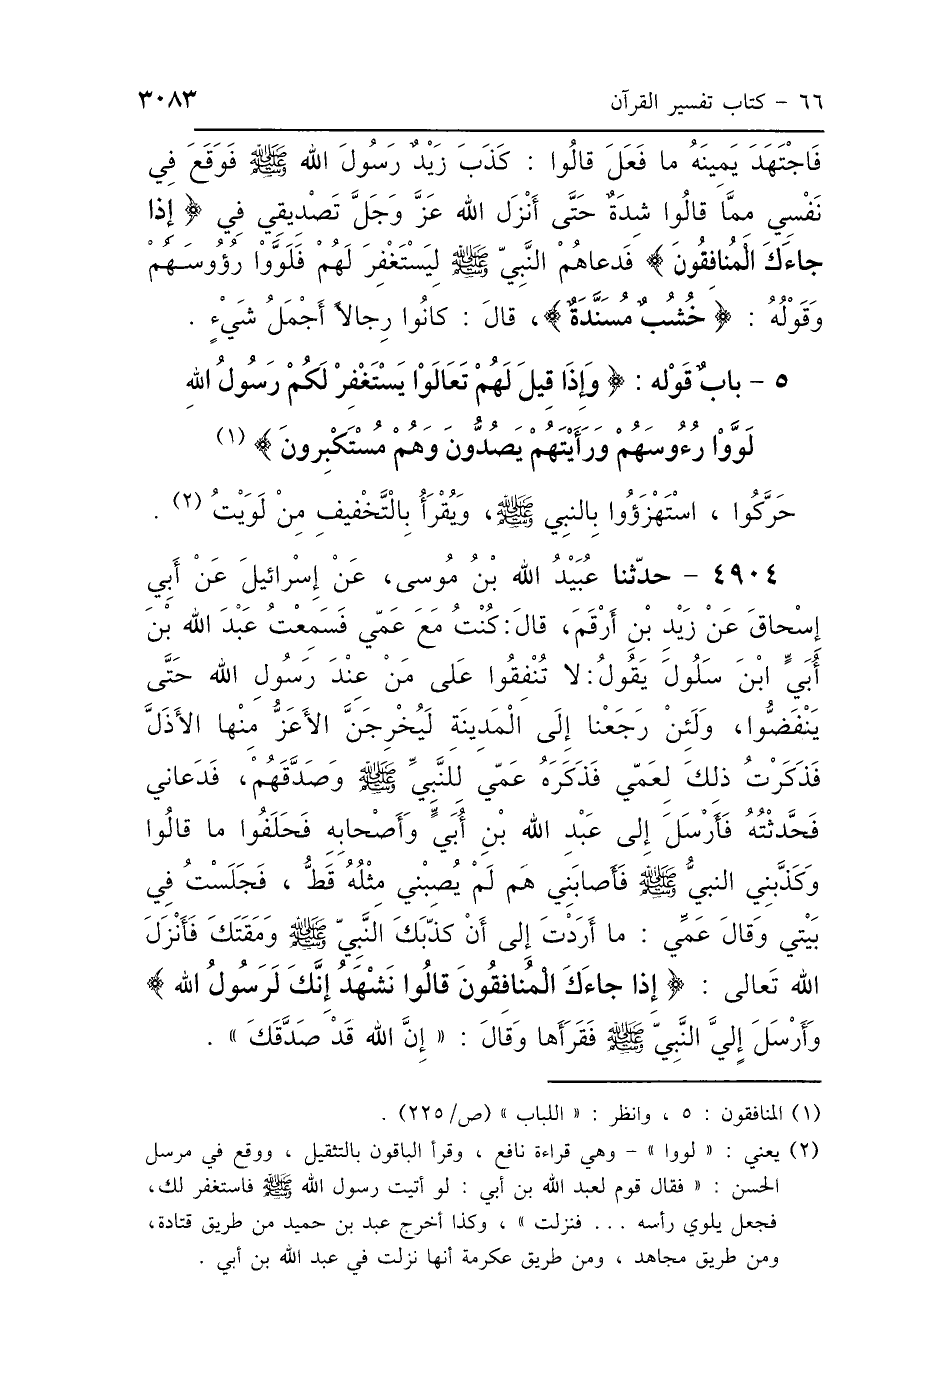 ٦٦ – كتاب تفسير القرآن ٣٠٨٣
فَاجْتَهَدَ يَمِينَهُ ما فَعَلَ قالُوا : كَذَبَ زَيْدٌ رَسُولَ الله ﷺ فَوَقَعَ فِي
نَفْسِي مِمَّا قالُوا شِدَةٌ حَتَّى أَنْزَلَ الله عَزَّ وَجَلَّ تَصْدِيقِي فِي ﴿ إِذا
جاءَكَ الْمُنافِقُونَ ﴾ فَدعاهُمْ النَّبِيّ ﷺ لِيَسْتَغْفِرَ لَهُمْ فَلَوَّوْا رُؤُوسَهُمْ
وَقَوْلُهُ : ﴿ خُشُبٌ مُسَنَّدَةٌ ﴾، قالَ : كانُوا رِجالاً أَجْمَلُ شَيْءٍ .
٥ – بابٌ قَوْله : ﴿ وَإِذَا قِيلَ لَهُمْ تَعَالَوْا يَسْتَغْفِرْ لَكُمْ رَسُولُ اللهِ
لَوَّوْا رُءوسَهُمْ وَرَأَيْتَهُمْ يَصُدُّونَ وَهُمْ مُسْتَكْبِرونَ ﴾ (١)
حَرَّكُوا ، اسْتَهْزَؤُوا بِالنبي ﷺ، وَيُقْرَأُ بِالْتَّخْفِيفِ مِنْ لَوَيْتُ (٢) .
٤٩٠٤ – حدّثنا عُبَيْدُ الله بْنُ مُوسى، عَنْ إِسْرائيلَ عَنْ أَبي
إِسْحاقَ عَنْ زَيْدِ بْنِ أَرْقَمَ، قالَ: كُنْتُ مَعَ عَمّي فَسَمِعْتُ عَبْدَ الله بْنَ
أُبَيٍّ ابْنَ سَلُولَ يَقُولُ: لا تُنْفِقُوا عَلى مَنْ عِنْدَ رَسُولِ الله حَتَّى
يَنْفَضُّوا، وَلَئِنْ رَجَعْنا إِلَى الْمَدِينَةِ لَيُخْرِجَنَّ الأَعَزُّ مِنْها الأَذَلَّ
فَذَكَرْتُ ذلِكَ لِعَمّي فَذَكَرَهُ عَمّي لِلنَّبِيِّ ﷺ وَصَدَّقَهُمْ، فَدَعاني
فَحَّدثْتُهُ فَأَرْسَلَ إِلى عَبْدِ الله بْنِ أُبَيٍّ وَأَصْحابِهِ فَحَلَفُوا ما قالُوا
وَكَذَّبَنِي النبيُّ ﷺ فَأَصابَنِي هَم لَمْ يُصِبْنِي مِثْلُهُ قَطُّ ، فَجَلَسْتُ فِي
بَيْتِي وَقالَ عَمِّي : ما أَردْتَ إِلى أَنْ كَذّبَكَ النَّبِيّ ﷺ وَمَقَتَكَ فَأَنْزَلَ
الله تَعالى : ﴿ إِذا جاءَكَ الْمُنافِقُونَ قالُوا نَشْهَدُ إِنَّكَ لَرَسُولُ الله ﴾
وَأَرْسَلَ إِليَّ النَّبِيّ ﷺ فَقَرَأَها وَقالَ : « إِنَّ الله قَدْ صَدَّقَكَ » .
(١) المنافقون : ٥ ، وانظر : « اللباب » (ص/٢٢٥) .
(٢) يعني : « لووا » – وهي قراءة نافع ، وقرأ الباقون بالتثقيل ، ووقع في مرسل
الحسن : « فقال قوم لعبد الله بن أبي : لو أتيت رسول الله ﷺ فاستغفر لك،
فجعل يلوي رأسه ... فنزلت » ، وكذا أخرج عبد بن حميد من طريق قتادة،
ومن طريق مجاهد ، ومن طريق عكرمة أنها نزلت في عبد الله بن أبي .